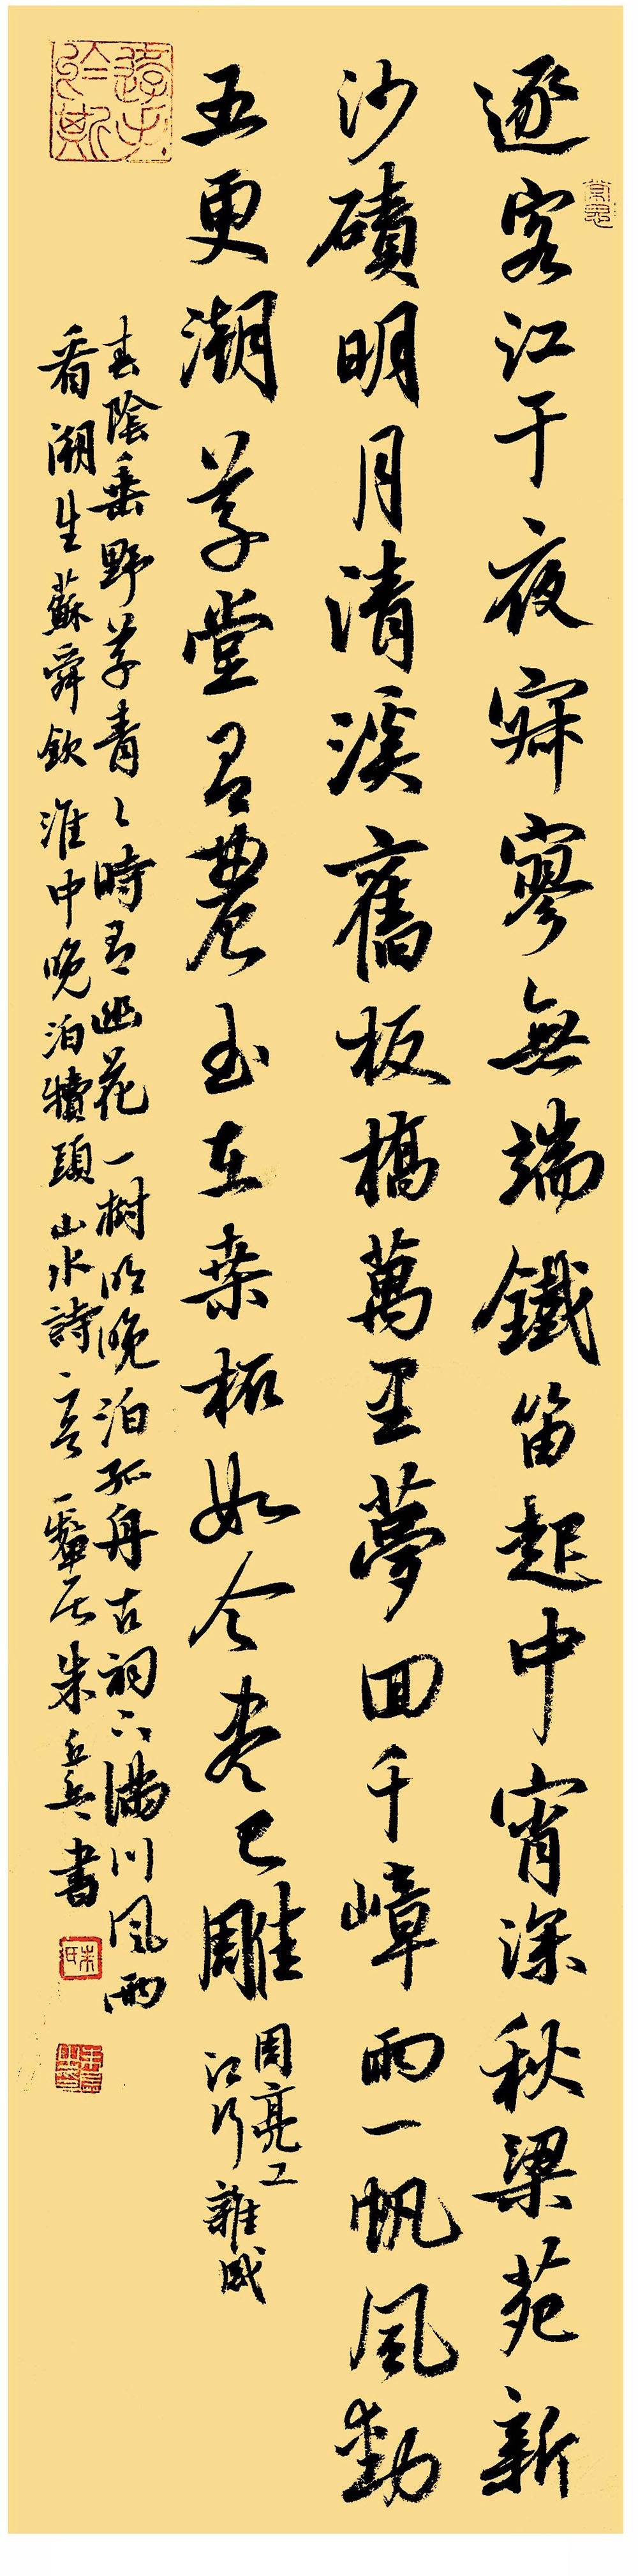 逐客江干夜寂寥無端鐵笛起中宵深秋梁苑新
沙磧明月清溪舊板橋萬里夢回千嶂雨一帆風動
五更潮草堂有農書在桑柘如今盡已雕
周亮工
江行雜感
春陰垂野草青〻時有幽花一樹明晚泊孤舟古祠下滿川風雨
看潮生蘇舜欽淮中晚泊犢頭山水詩
朱
書